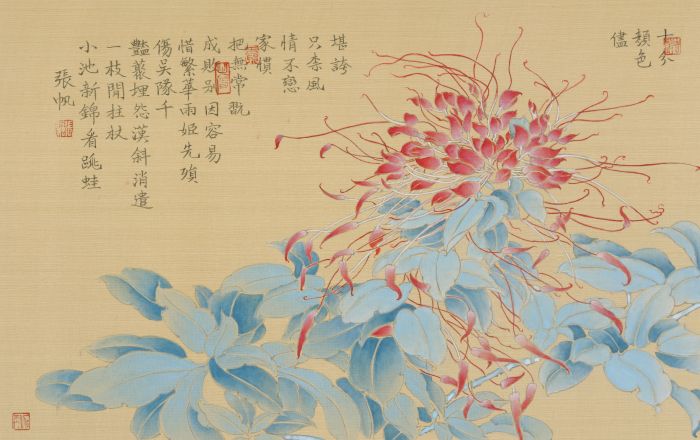 十分
顏色
儘
堪誇
只柰風
情不戀
家慣
把無常翫
成敗別因容易
惜繁華兩姬先殞
傷吴隊千
豔藂埋怨漢斜消遣
一枝閒拄杖
小池新錦看跳蛙
張帆